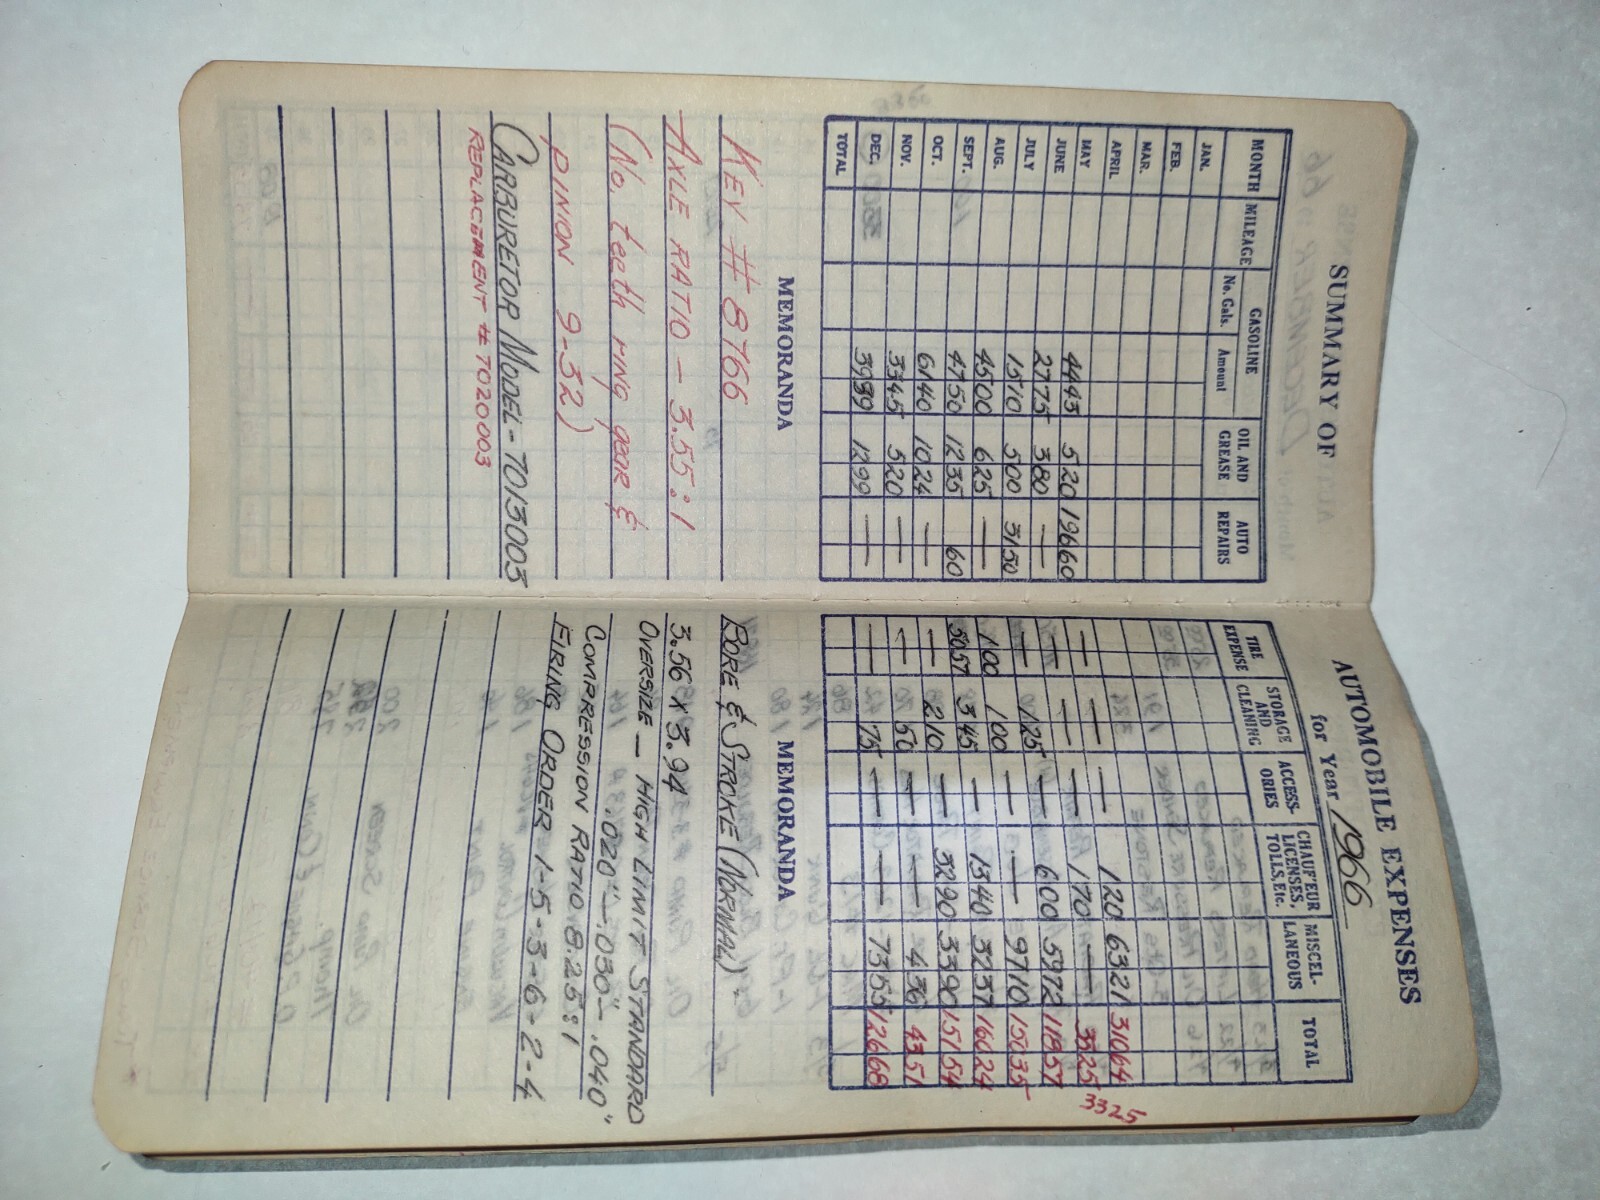 SUMMARY OF
MONTH MILEAGE GASOLINE No. Gals. Amount OIL AND GREASE AUTO REPAIRS
JAN.
FEB.
MAR.
APRIL
MAY 4443 520 19660
JUNE 2775 380 —
JULY 1510 500 3150
AUG. 4500 625 —
SEPT. 4750 1235 60
OCT. 6440 1024 —
NOV. 3345 520 —
DEC. 3939 1299 —
TOTAL
MEMORANDA
KEY # 8766
AXLE RATIO — 3.55:1
(No. teeth ring gear &
PINION 9-32)
CARBURETOR MODEL-7013003
REPLACEMENT # 7020003
AUTOMOBILE EXPENSES
for Year 1966
TIRE EXPENSE STORAGE AND CLEANING ACCESS-ORIES CHAUF'EUR LICENSES, TOLLS, Etc. MISCEL-LANEOUS TOTAL
120 6321 31064
— — — 170 — 3325 3325
— — — 600 5972 11857
— 125 — — 9710 15035
100 100 — 1340 3237 16024
5057 345 — 3290 3390 15154
— 210 — — 436 4351
— 50 — — 7355 12668
— 75 —
MEMORANDA
BORE & STROKE (NORMAL) -
3.56 x 3.94
OVERSIZE — HIGH LIMIT STANDARD
.020" — .030" — .040"
COMPRESSION RATIO 8.25:1
FIRING ORDER 1-5-3-6-2-4